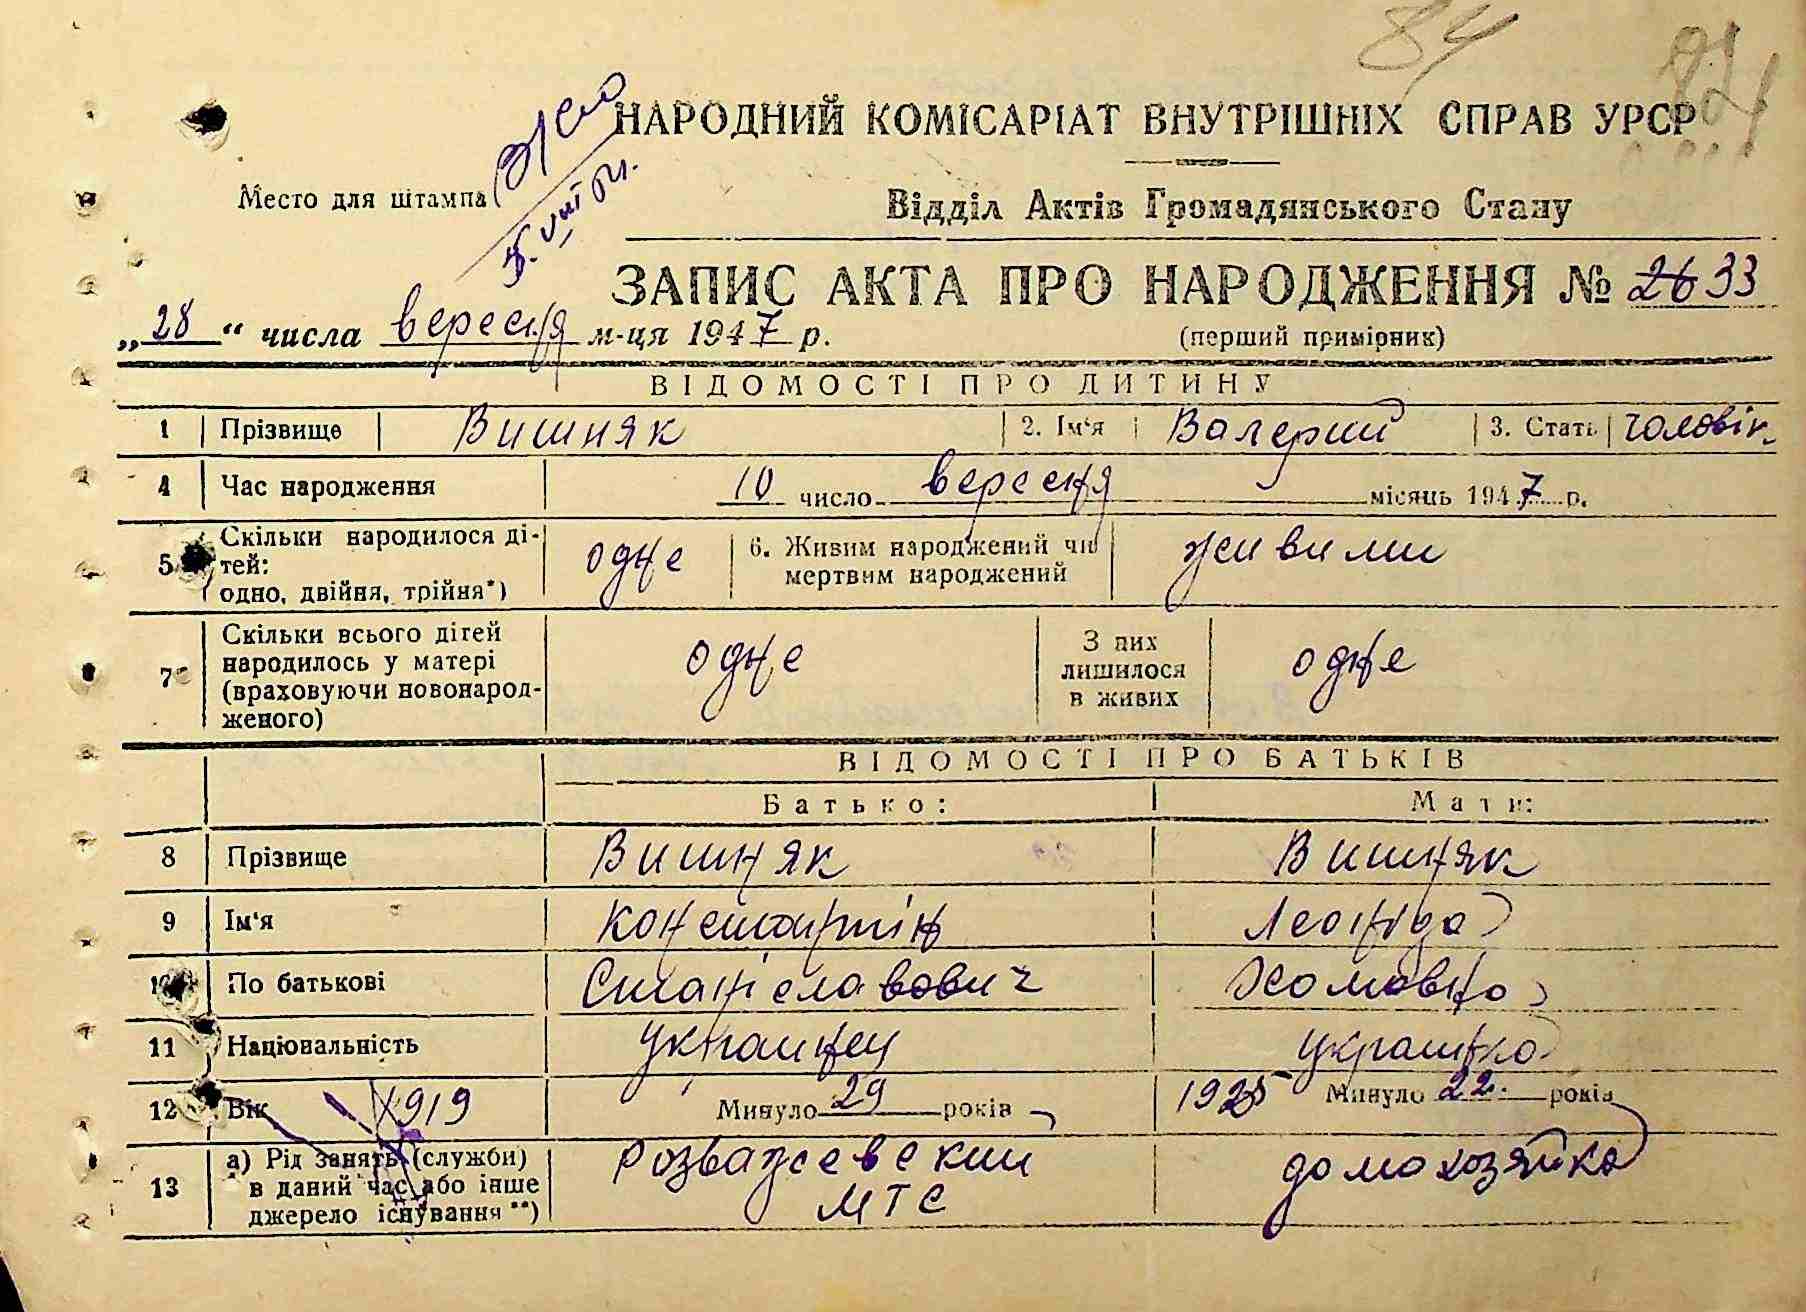 84
84
НАРОДНИЙ КОМІСАРІАТ ВНУТРІШНІХ СПРАВ УРСР
Место для штампа
Відділ Актів Громадянського Стану
ЗАПИС АКТА ПРО НАРОДЖЕННЯ № 2633
„28“ числа вересня м-ця 1947 р.
(перший примірник)
ВІДОМОСТІ ПРО ДИТИНУ
1 Прізвище Вишняк 2. Ім‘я Валерий 3. Стать чоловік.
4 Час народження 10 число вересня місяць 1947 р.
5 Скільки народилося ді-
тей:
одно, двійня, трійня*)
одне
6. Живим народжений чи
мертвим народжений
живими
7 Скільки всього дітей
народилось у матері
(враховуючи новонарод-
женого)
одне
З них
лишилося
в живих
одне
ВІДОМОСТІ ПРО БАТЬКІВ
Батько: Мати:
8 Прізвище Вишняк Вишняк
9 Ім‘я Константін Леонида
10 По батькові Станіславович Хомовна
11 Національність украинец украинка
12 Вік 1919 Минуло 29 років 1925 Минуло 22. років
13 а) Рід занять (служби)
в даний час або інше
джерело існування**)
Розважевский
МТС
домохозяйка